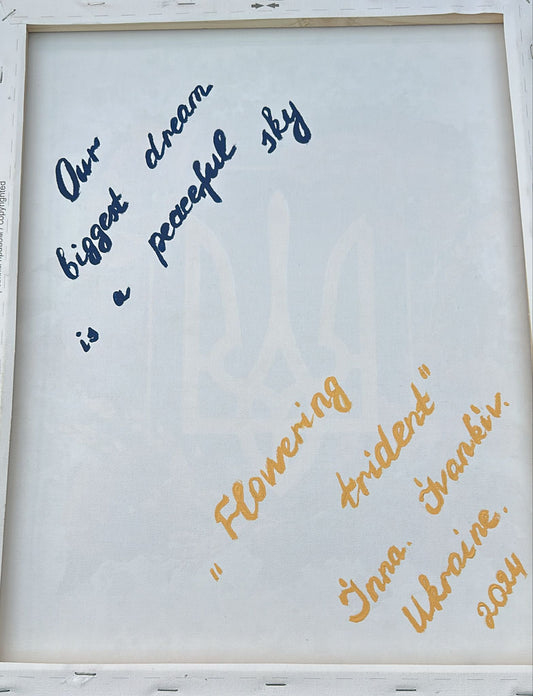 Our
biggest dream
is a peaceful sky
"Flowering
trident"
Inna. Ivankiv.
Ukraine.
2024